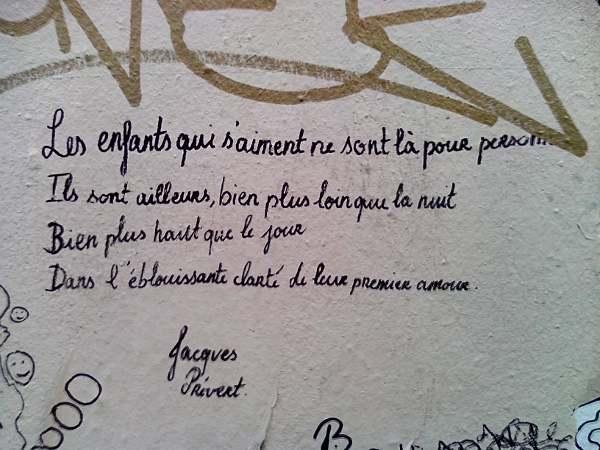 Les enfants qui s'aiment ne sont là pour
Ils sont ailleurs, bien plus loin que la nuit
Bien plus haut que le jour
Dans l'éblouissante clarté de leur premier amour.
Jacques
Prévert.